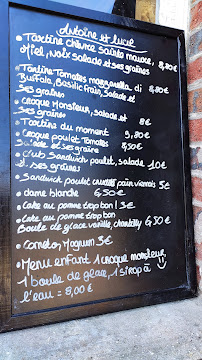 Antoine et Lucie
• Tartine chèvre sainte maure, 8,80€
Miel, Noix salade et ses graines
• Tartine Tomates mozzarella di
Buffala, Basilic frais, salade et
ses graines 8,80€
• Croque Monsieur, salade et
ses graines 8€
• Tartine du moment 9,80€
• Croque poulet Tomates
salade et ses graines 8,50€
• Club Sandwich poulet, salade
et ses graines 10€
• Sandwich poulet crudités pain viennois 5€
• dame blanche 6,50€
• Cake au pomme trop bon! 3€
• Cake au pomme trop bon
Boule de glace vanille, chantilly 6,50€
• Cornéto, Magnum 3€
• Menu enfant 1 croque monsieur,
1 boule de glace, 1 sirop à
l'eau = 8,00€